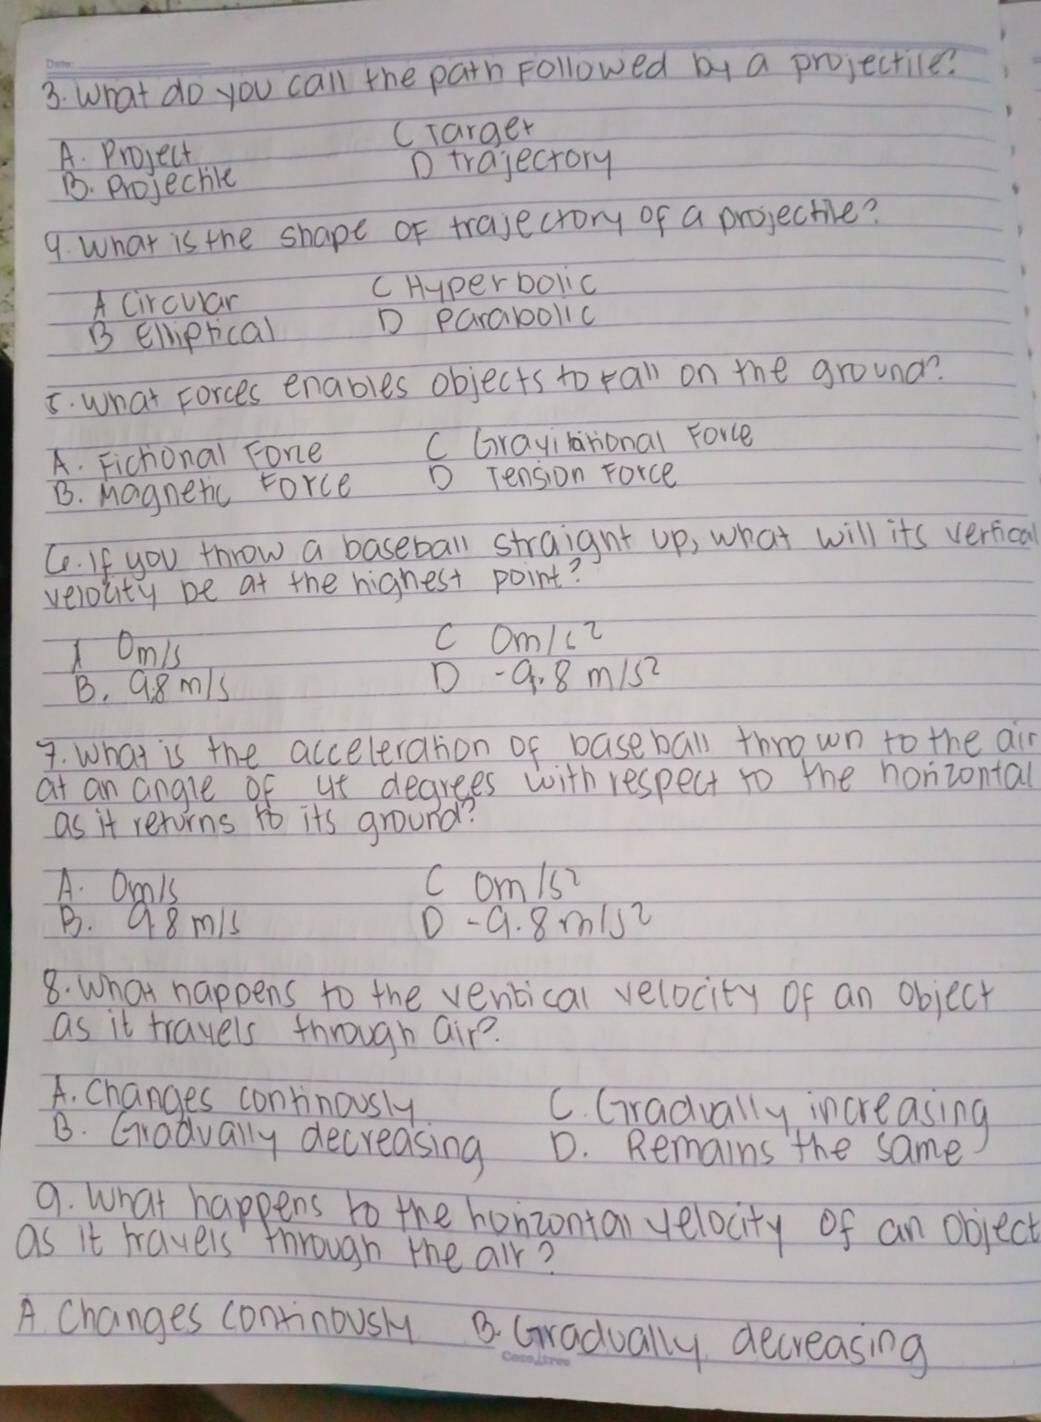 Date:
3. What do you call the path followed by a projectile?
A. Project
C Target
B. Projectile
D trajectory
4. What is the shape of trajectory of a projectile?
A Circular
C Hyperbolic
B Elliptical
D parabolic
5. What Forces enables objects to fall on the ground?
A. Fictional Force
C Gravitational Force
B. Magnetic Force
D Tension Force
6. If you throw a baseball straight up, what will its vertical
velocity be at the highest point?
A 0m/s
C 0m/s²
B. 9.8 m/s
D -9.8 m/s²
7. What is the acceleration of baseball thrown to the air
at an angle of degrees with respect to the horizontal
as it returns to its ground?
A. 0m/s
C 0m/s²
B. 9.8 m/s
D -9.8 m/s²
8. What happens to the vertical velocity of an object
as it travels through air?
A. Changes continously
C. Gradually increasing
B. Gradually decreasing
D. Remains the same
9. What happens to the horizontal velocity of an object
as it travels through the air?
A. Changes continously B. Gradually decreasing